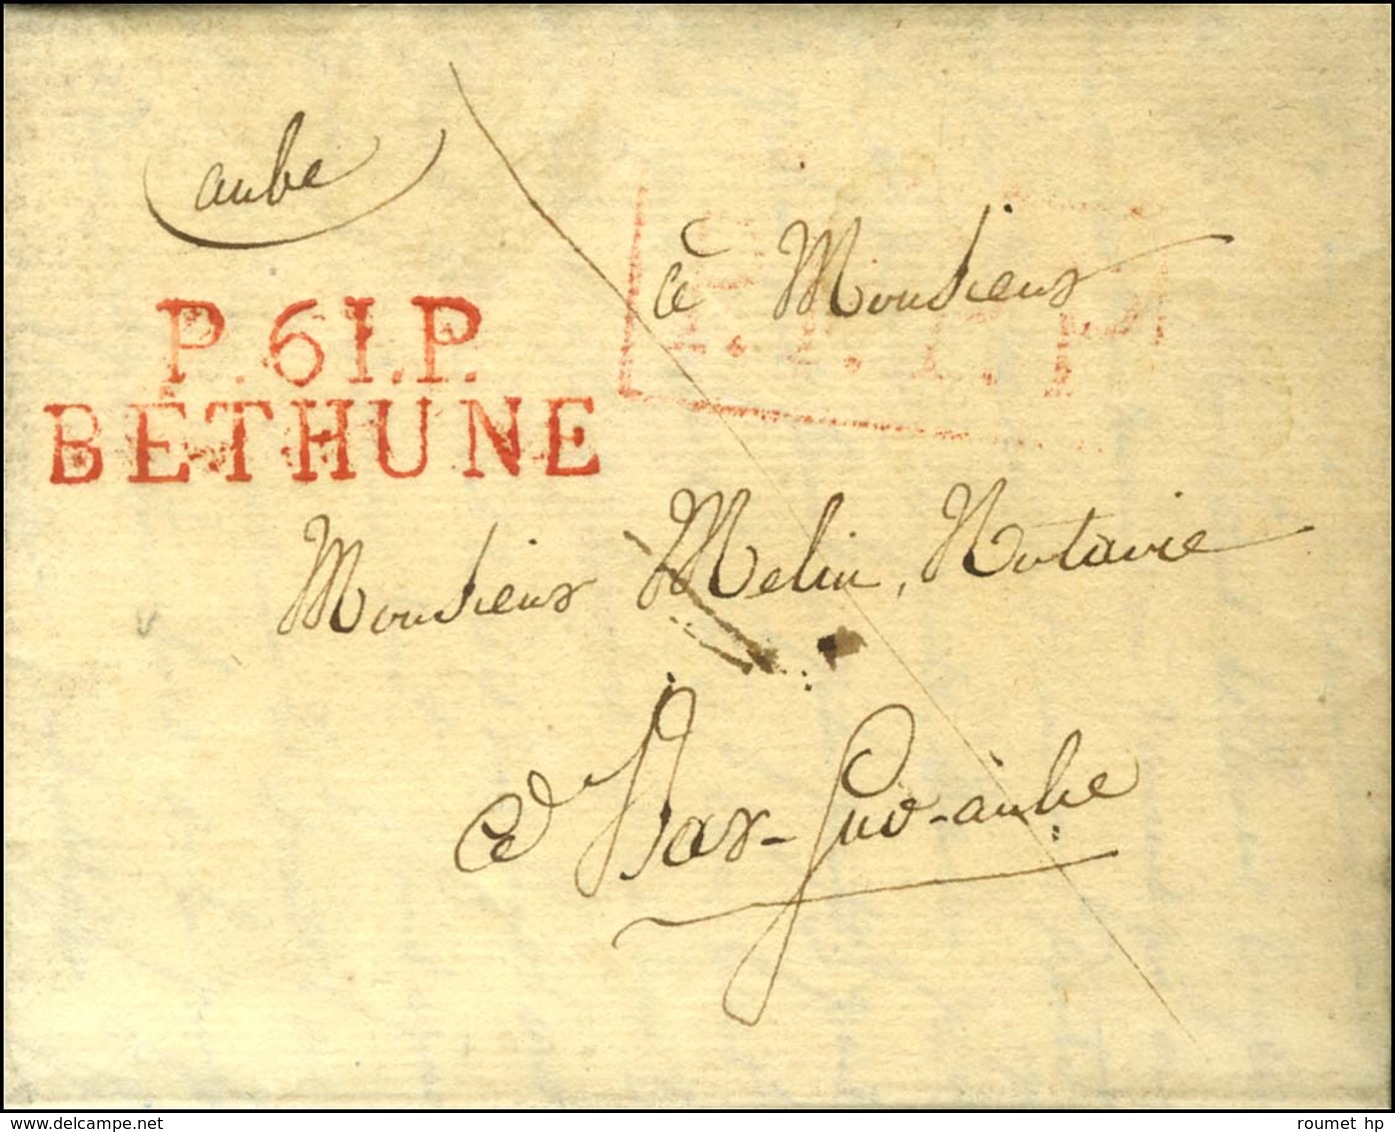 aube
à Monsieur
P.61.P.
BETHUNE
Monsieur Melin, Notaire
à Bar-Sur-aube
www.delcampe.net
roumet hp